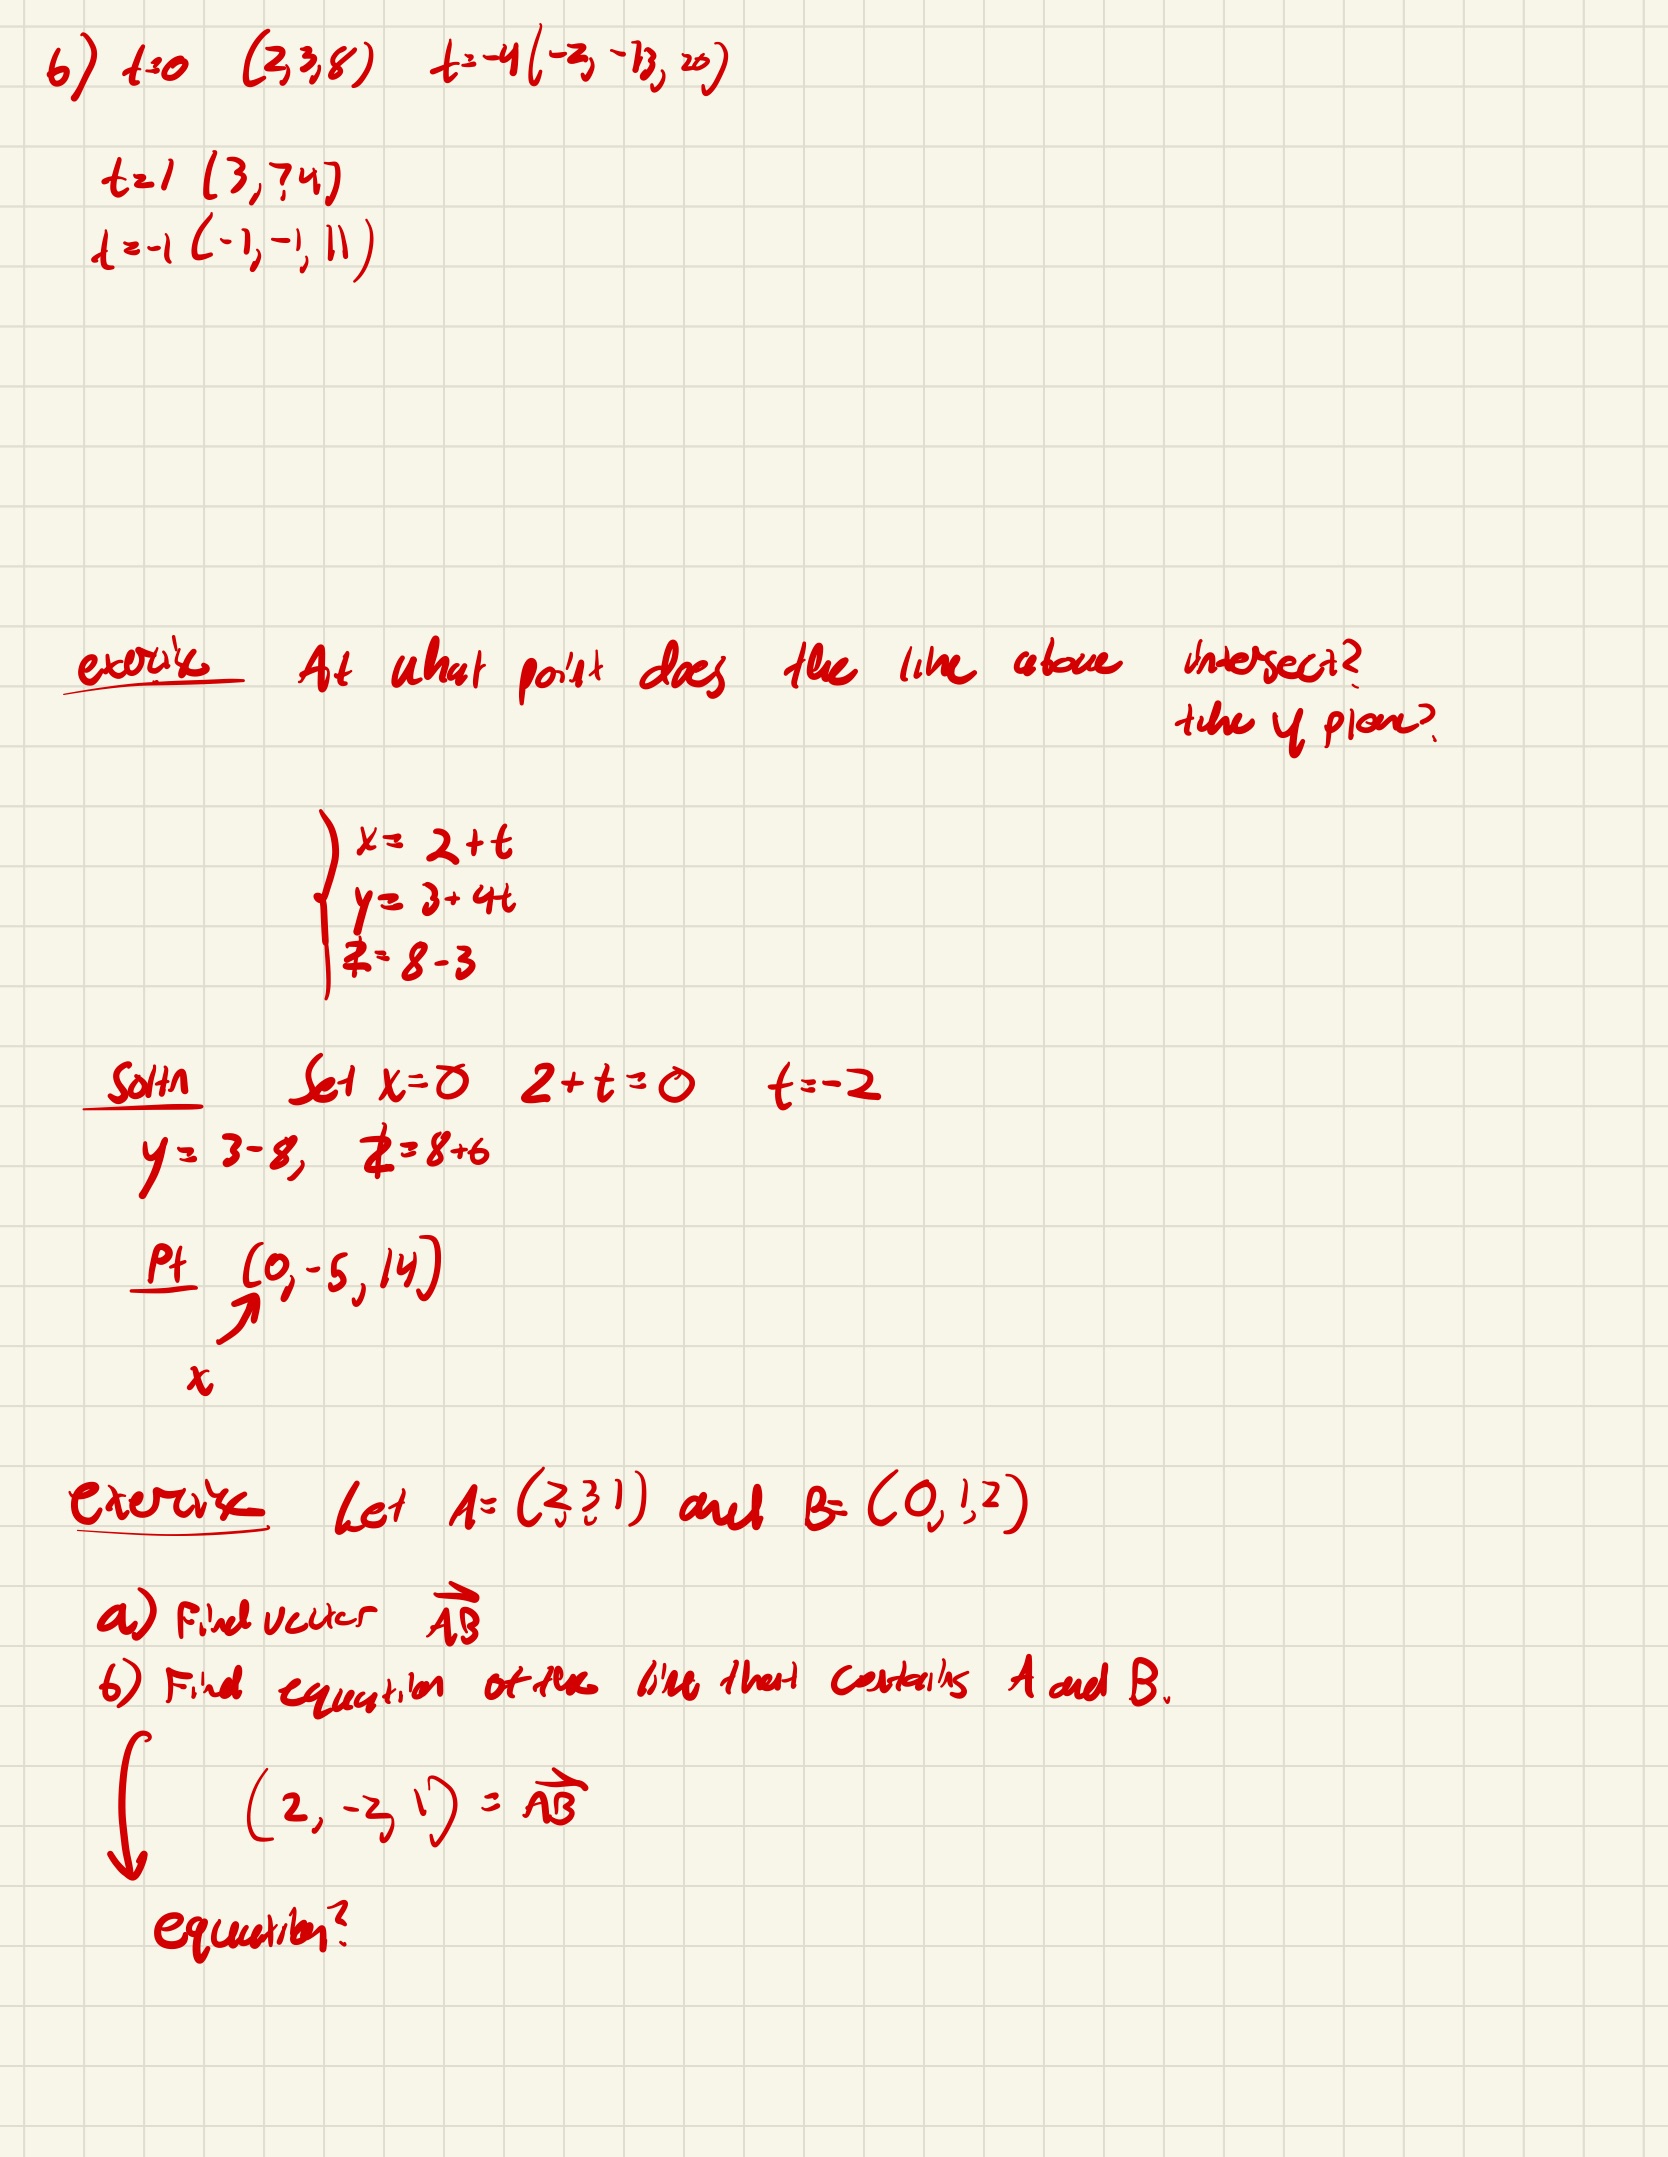 b) t=0 (2,3,8) t=-4(-2, -13, 20)
t=1 (3,7,4)
t=-1 (-1,-1,11)
exercise At what point does the line above intersect?
the y plane?
x= 2+t
y= 3+4t
z= 8-3
Soltn Set x=0 2+t=0 t=-2
y= 3-8, z=8+6
Pt (0,-5,14)
x
exercise Let A=(2,3,1) and B=(0,1,2)
a) Find vector AB
b) Find equation of the line that contains A and B.
(2, -2, 1) = AB
equation?